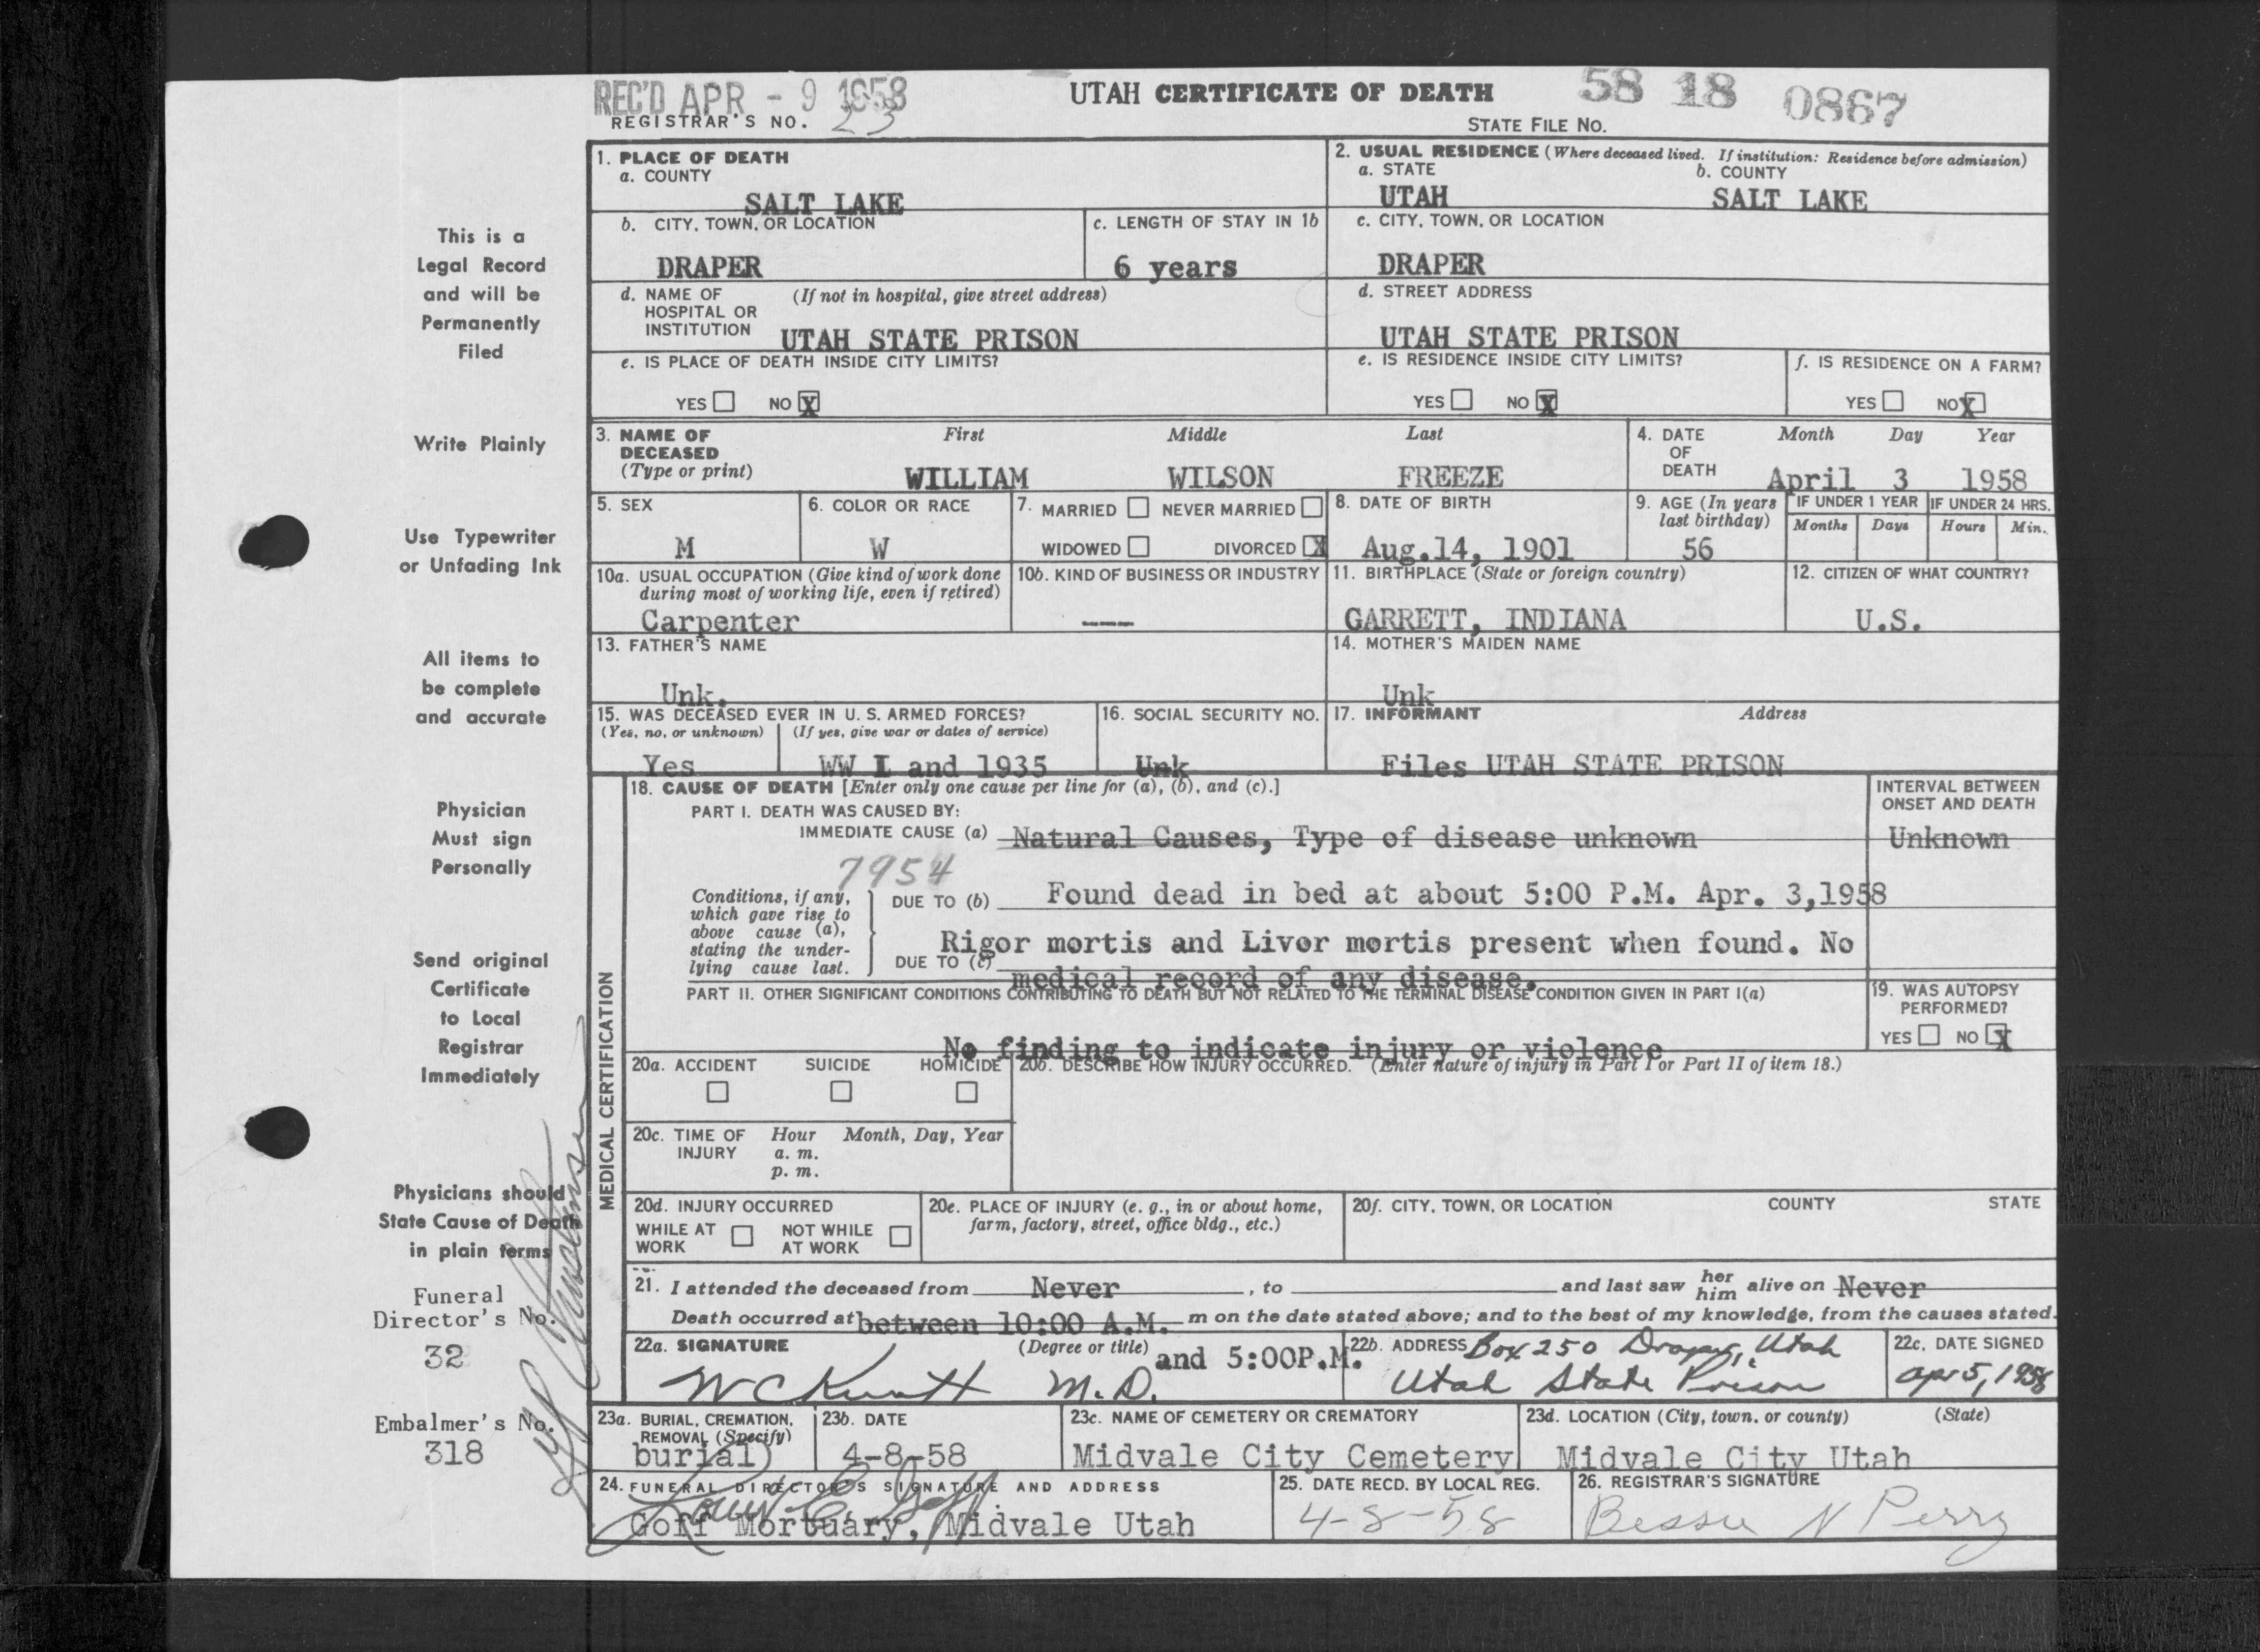 REC'D APR - 9 1958
UTAH CERTIFICATE OF DEATH
58 18 0867
REGISTRAR'S NO. 23
STATE FILE NO.
1. PLACE OF DEATH
a. COUNTY
SALT LAKE
2. USUAL RESIDENCE (Where deceased lived. If institution: Residence before admission)
a. STATE b. COUNTY
UTAH SALT LAKE
b. CITY, TOWN, OR LOCATION
DRAPER
c. LENGTH OF STAY IN 1b
6 years
c. CITY, TOWN, OR LOCATION
DRAPER
d. NAME OF (If not in hospital, give street address)
HOSPITAL OR
INSTITUTION UTAH STATE PRISON
d. STREET ADDRESS
UTAH STATE PRISON
e. IS PLACE OF DEATH INSIDE CITY LIMITS?
YES NO X
e. IS RESIDENCE INSIDE CITY LIMITS?
YES NO X
f. IS RESIDENCE ON A FARM?
YES NO X
3. NAME OF First Middle Last
DECEASED
(Type or print) WILLIAM WILSON FREEZE
4. DATE Month Day Year
OF
DEATH April 3 1958
5. SEX
M
6. COLOR OR RACE
W
7. MARRIED NEVER MARRIED
WIDOWED DIVORCED X
8. DATE OF BIRTH
Aug.14, 1901
9. AGE (In years
last birthday)
56
IF UNDER 1 YEAR
Months Days
IF UNDER 24 HRS.
Hours Min.
10a. USUAL OCCUPATION (Give kind of work done
during most of working life, even if retired)
Carpenter
10b. KIND OF BUSINESS OR INDUSTRY
----
11. BIRTHPLACE (State or foreign country)
GARRETT, INDIANA
12. CITIZEN OF WHAT COUNTRY?
U.S.
13. FATHER'S NAME
Unk.
14. MOTHER'S MAIDEN NAME
Unk
15. WAS DECEASED EVER IN U. S. ARMED FORCES?
(Yes, no, or unknown) (If yes, give war or dates of service)
Yes WW I and 1935
16. SOCIAL SECURITY NO.
Unk
17. INFORMANT Address
Files UTAH STATE PRISON
MEDICAL CERTIFICATION
18. CAUSE OF DEATH [Enter only one cause per line for (a), (b), and (c).]
PART I. DEATH WAS CAUSED BY:
IMMEDIATE CAUSE (a) Natural Causes, Type of disease unknown
INTERVAL BETWEEN
ONSET AND DEATH
Unknown
7954
Conditions, if any,
which gave rise to
above cause (a),
stating the under-
lying cause last.
DUE TO (b) Found dead in bed at about 5:00 P.M. Apr. 3,1958
Rigor mortis and Livor mortis present when found. No
DUE TO (c)
medical record of any disease.
PART II. OTHER SIGNIFICANT CONDITIONS CONTRIBUTING TO DEATH BUT NOT RELATED TO THE TERMINAL DISEASE CONDITION GIVEN IN PART I(a)
No finding to indicate injury or violence
19. WAS AUTOPSY
PERFORMED?
YES NO X
20a. ACCIDENT SUICIDE HOMICIDE
20b. DESCRIBE HOW INJURY OCCURRED. (Enter nature of injury in Part I or Part II of item 18.)
20c. TIME OF Hour Month, Day, Year
INJURY a. m.
p. m.
20d. INJURY OCCURRED
WHILE AT NOT WHILE
WORK AT WORK
20e. PLACE OF INJURY (e. g., in or about home,
farm, factory, street, office bldg., etc.)
20f. CITY, TOWN, OR LOCATION COUNTY STATE
21. I attended the deceased from Never, to and last saw her him alive on Never
Death occurred at between 10:00 A.M. m on the date stated above; and to the best of my knowledge, from the causes stated.
22a. SIGNATURE (Degree or title) and 5:00P.M.
M.D.
22b. ADDRESS Box 250 Draper, Utah
Utah State Prison
22c. DATE SIGNED
Apr 5, 1958
23a. BURIAL, CREMATION,
REMOVAL (Specify)
burial
23b. DATE
4-8-58
23c. NAME OF CEMETERY OR CREMATORY
Midvale City Cemetery
23d. LOCATION (City, town, or county) (State)
Midvale City Utah
24. FUNERAL DIRECTOR'S SIGNATURE AND ADDRESS
Goff Mortuary, Midvale Utah
25. DATE RECD. BY LOCAL REG.
4-8-58
26. REGISTRAR'S SIGNATURE
Bessie N Perry
This is a
Legal Record
and will be
Permanently
Filed
Write Plainly
Use Typewriter
or Unfading Ink
All items to
be complete
and accurate
Physician
Must sign
Personally
Send original
Certificate
to Local
Registrar
Immediately
Physicians should
State Cause of Death
in plain terms
Funeral
Director's No.
32
Embalmer's No.
318